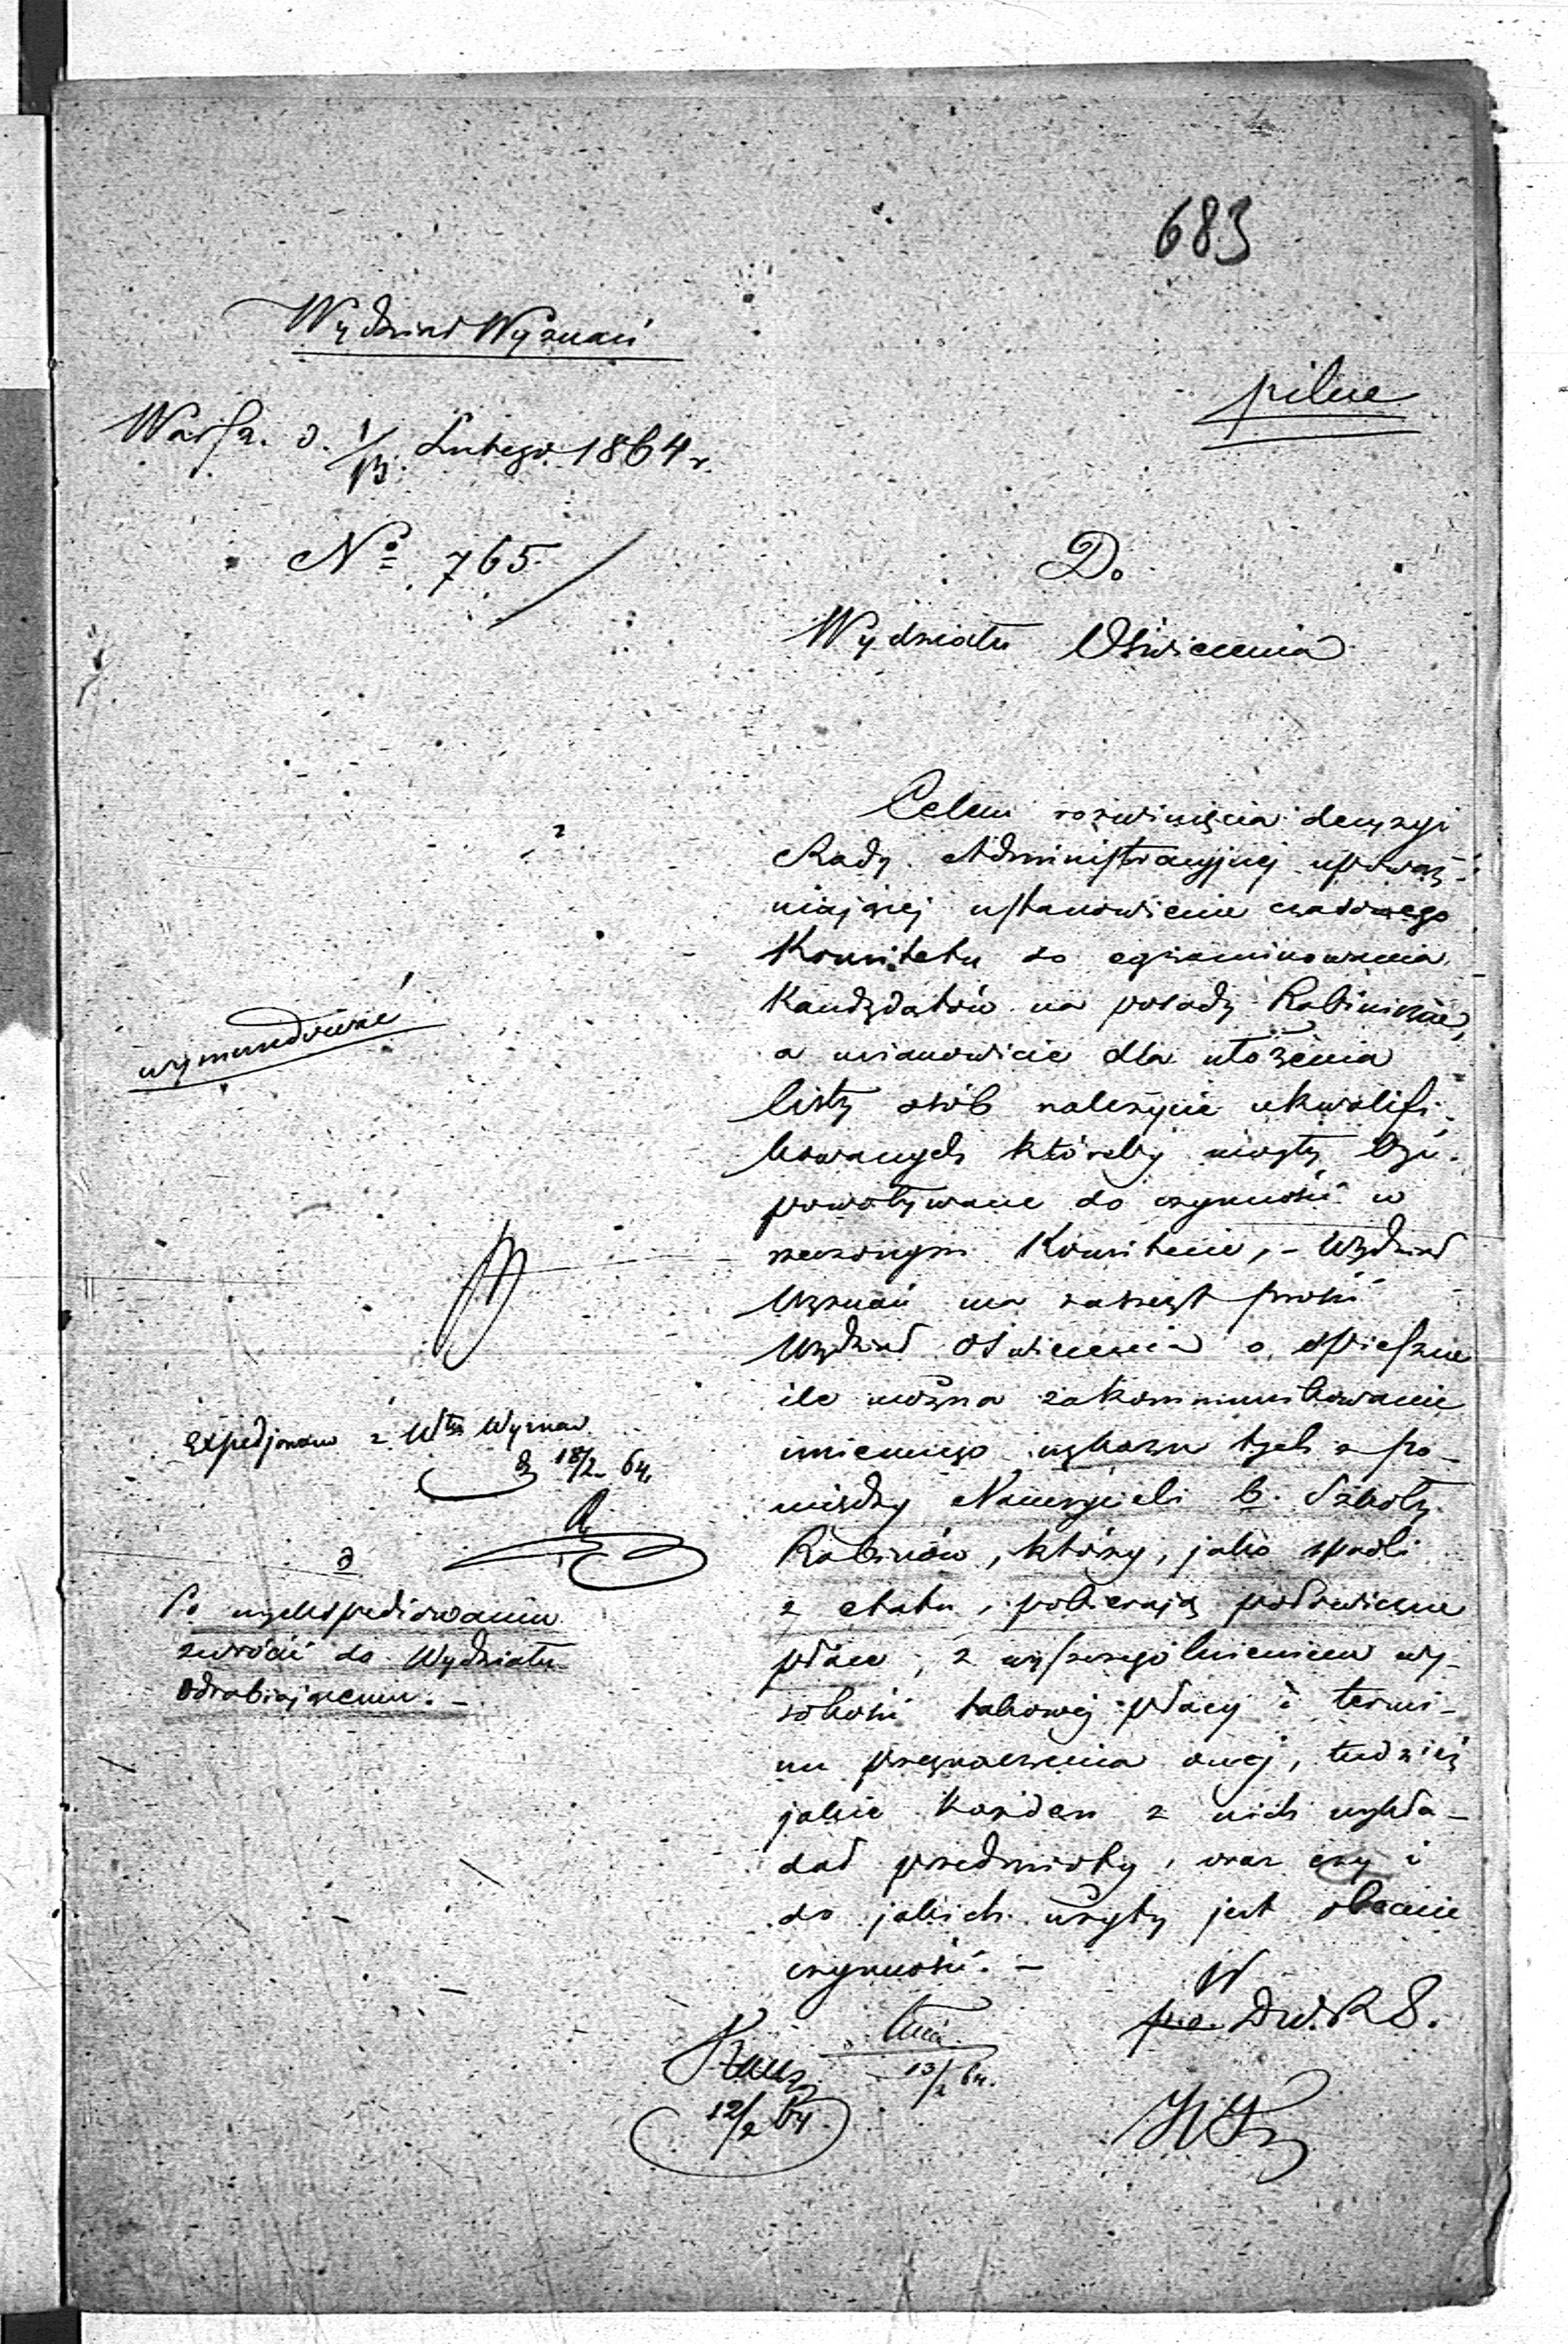 683
Wydział Wyznań
pilne
Warsz. d. 1/13 Lutego 1864 r.
No 765.
Do
Wydziału Oświecenia
Celem rozwinięcia decyzyi
Rady Administracyjnej upoważ-
niającej ustanowienie czasowego
Komitetu do egzaminowania
Kandydatów na posady Rabiniczne,
a mianowicie dla ułożenia
listy osób należycie ukwalifi-
kowanych któreby mogły być
powoływane do czynności w
rzeczonym Komitecie, – Wydział
Wyznań ma zaszczyt prosić
Wydział Oświecenia o spieszne
ile można zakommunikowanie
imiennego wykazu tych z po-
między Nauczycieli b. Szkoły
Rabinów, którzy, jako spadli
z etatu, pobierają połowiczne
płace, z wyszczególnieniem wy-
sokości takowej płacy i termi-
nu przeznaczenia onej, tudzież
jakie każden z nich wykła-
dał przedmioty, oraz czy i
do jakich użyty jest obecnie
czynności. –
wymundować
Expedjowano z Włu Wyznań
d 18/2 64.
d
Po wyekspediowaniu
zwrócić do Wydziału
Odrabiającemu. –
p.o. Dw. R S.
13/2 64.
12/2 64.